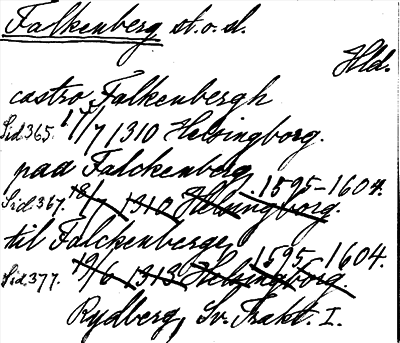 Falkenberg st.o.sl.
Hld.
castro Falkenbergh
Sid 365. 17/7 1310 Helsingborg.
paa Falckenberg
Sid. 367. 18/7 1310 Helsingborg. 1595-1604.
til Falckenberge
Sid 377. 19/6 1313 Helsingborg. 1595-1604.
Rydberg, Sv. Trakt. I.